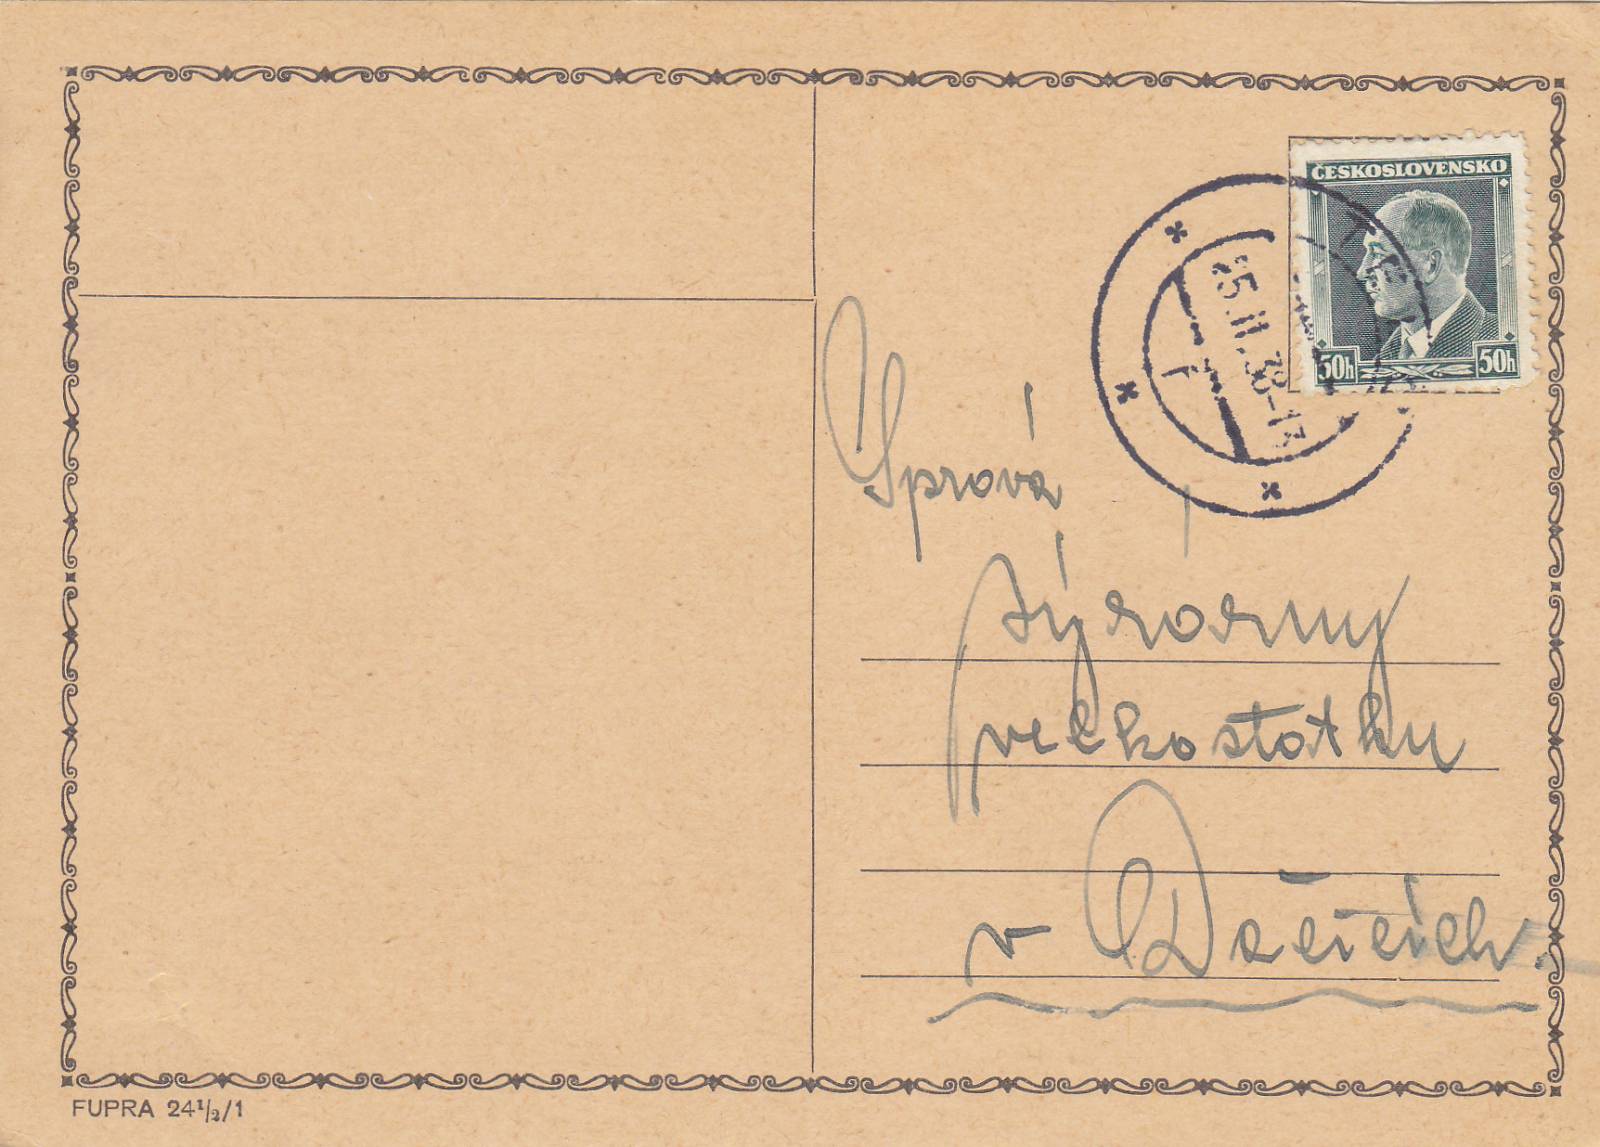 ČESKOSLOVENSKO
50h 50h
25.II.38-13
Správa
sýrárny
velkostatku
v Dačicích
FUPRA 24½/1